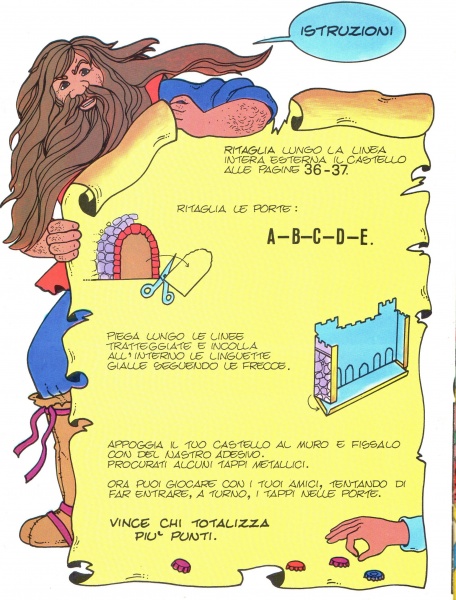 ISTRUZIONI
RITAGLIA LUNGO LA LINEA
INTERA ESTERNA IL CASTELLO
ALLE PAGINE 36-37.
RITAGLIA LE PORTE:
A-B-C-D-E.
PIEGA LUNGO LE LINEE
TRATTEGGIATE E INCOLLA
ALL'INTERNO LE LINGUETTE
GIALLE SEGUENDO LE FRECCE.
APPOGGIA IL TUO CASTELLO AL MURO E FISSALO
CON DEL NASTRO ADESIVO.
PROCURATI ALCUNI TAPPI METALLICI.
ORA PUOI GIOCARE CON I TUOI AMICI, TENTANDO DI
FAR ENTRARE, A TURNO, I TAPPI NELLE PORTE.
VINCE CHI TOTALIZZA
PIU' PUNTI.